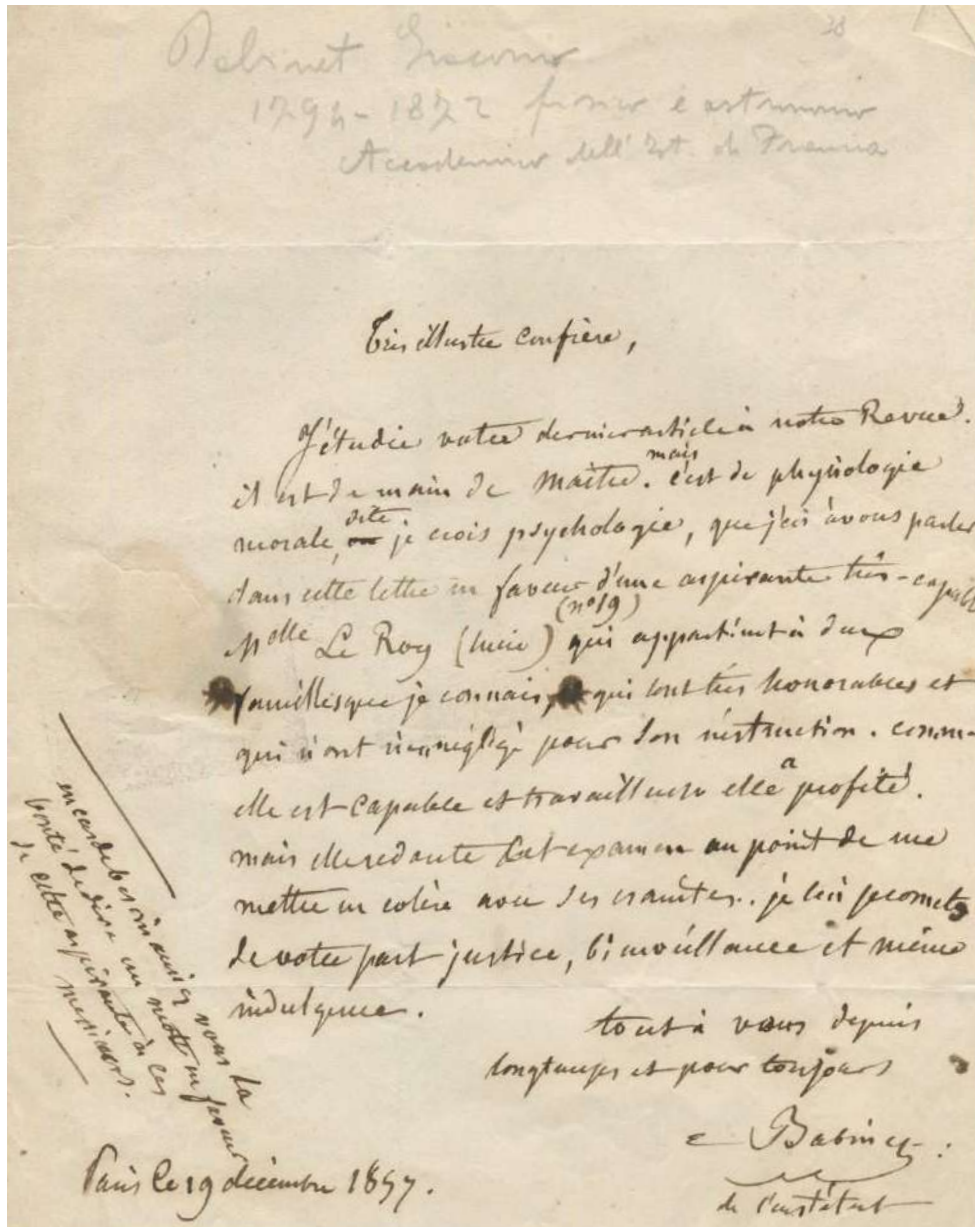 38
Babinet Giacomo
1794-1872 fisico e astronomo
Accademico dell' Ist. di Francia
Très illustre confrère,
J'étudie votre dernier article à notre Revue.
il est de main de maître. mais c'est de physiologie
morale, dite je crois psychologie, que j'ai à vous parler
dans cette lettre en faveur d'une aspirante très-capable
Melle Le Roy (lucie) (n° 19) qui appartient à deux
familles que je connais, qui sont très honorables et
qui n'ont rien négligé pour son instruction. comme
elle est capable et travailleuse elle a profité.
mais elle redoute cet examen au point de me
mettre en colère avec ses craintes.. je lui promets
de votre part justice, bienveillance et même
indulgence.
tout à vous depuis
longtemps et pour toujours
Babinet
de l'institut
Paris le 19 décembre 1857.
en cas de besoin auriez vous la
bonté de dire un mot en faveur
de cette aspirante à ces
messieurs.